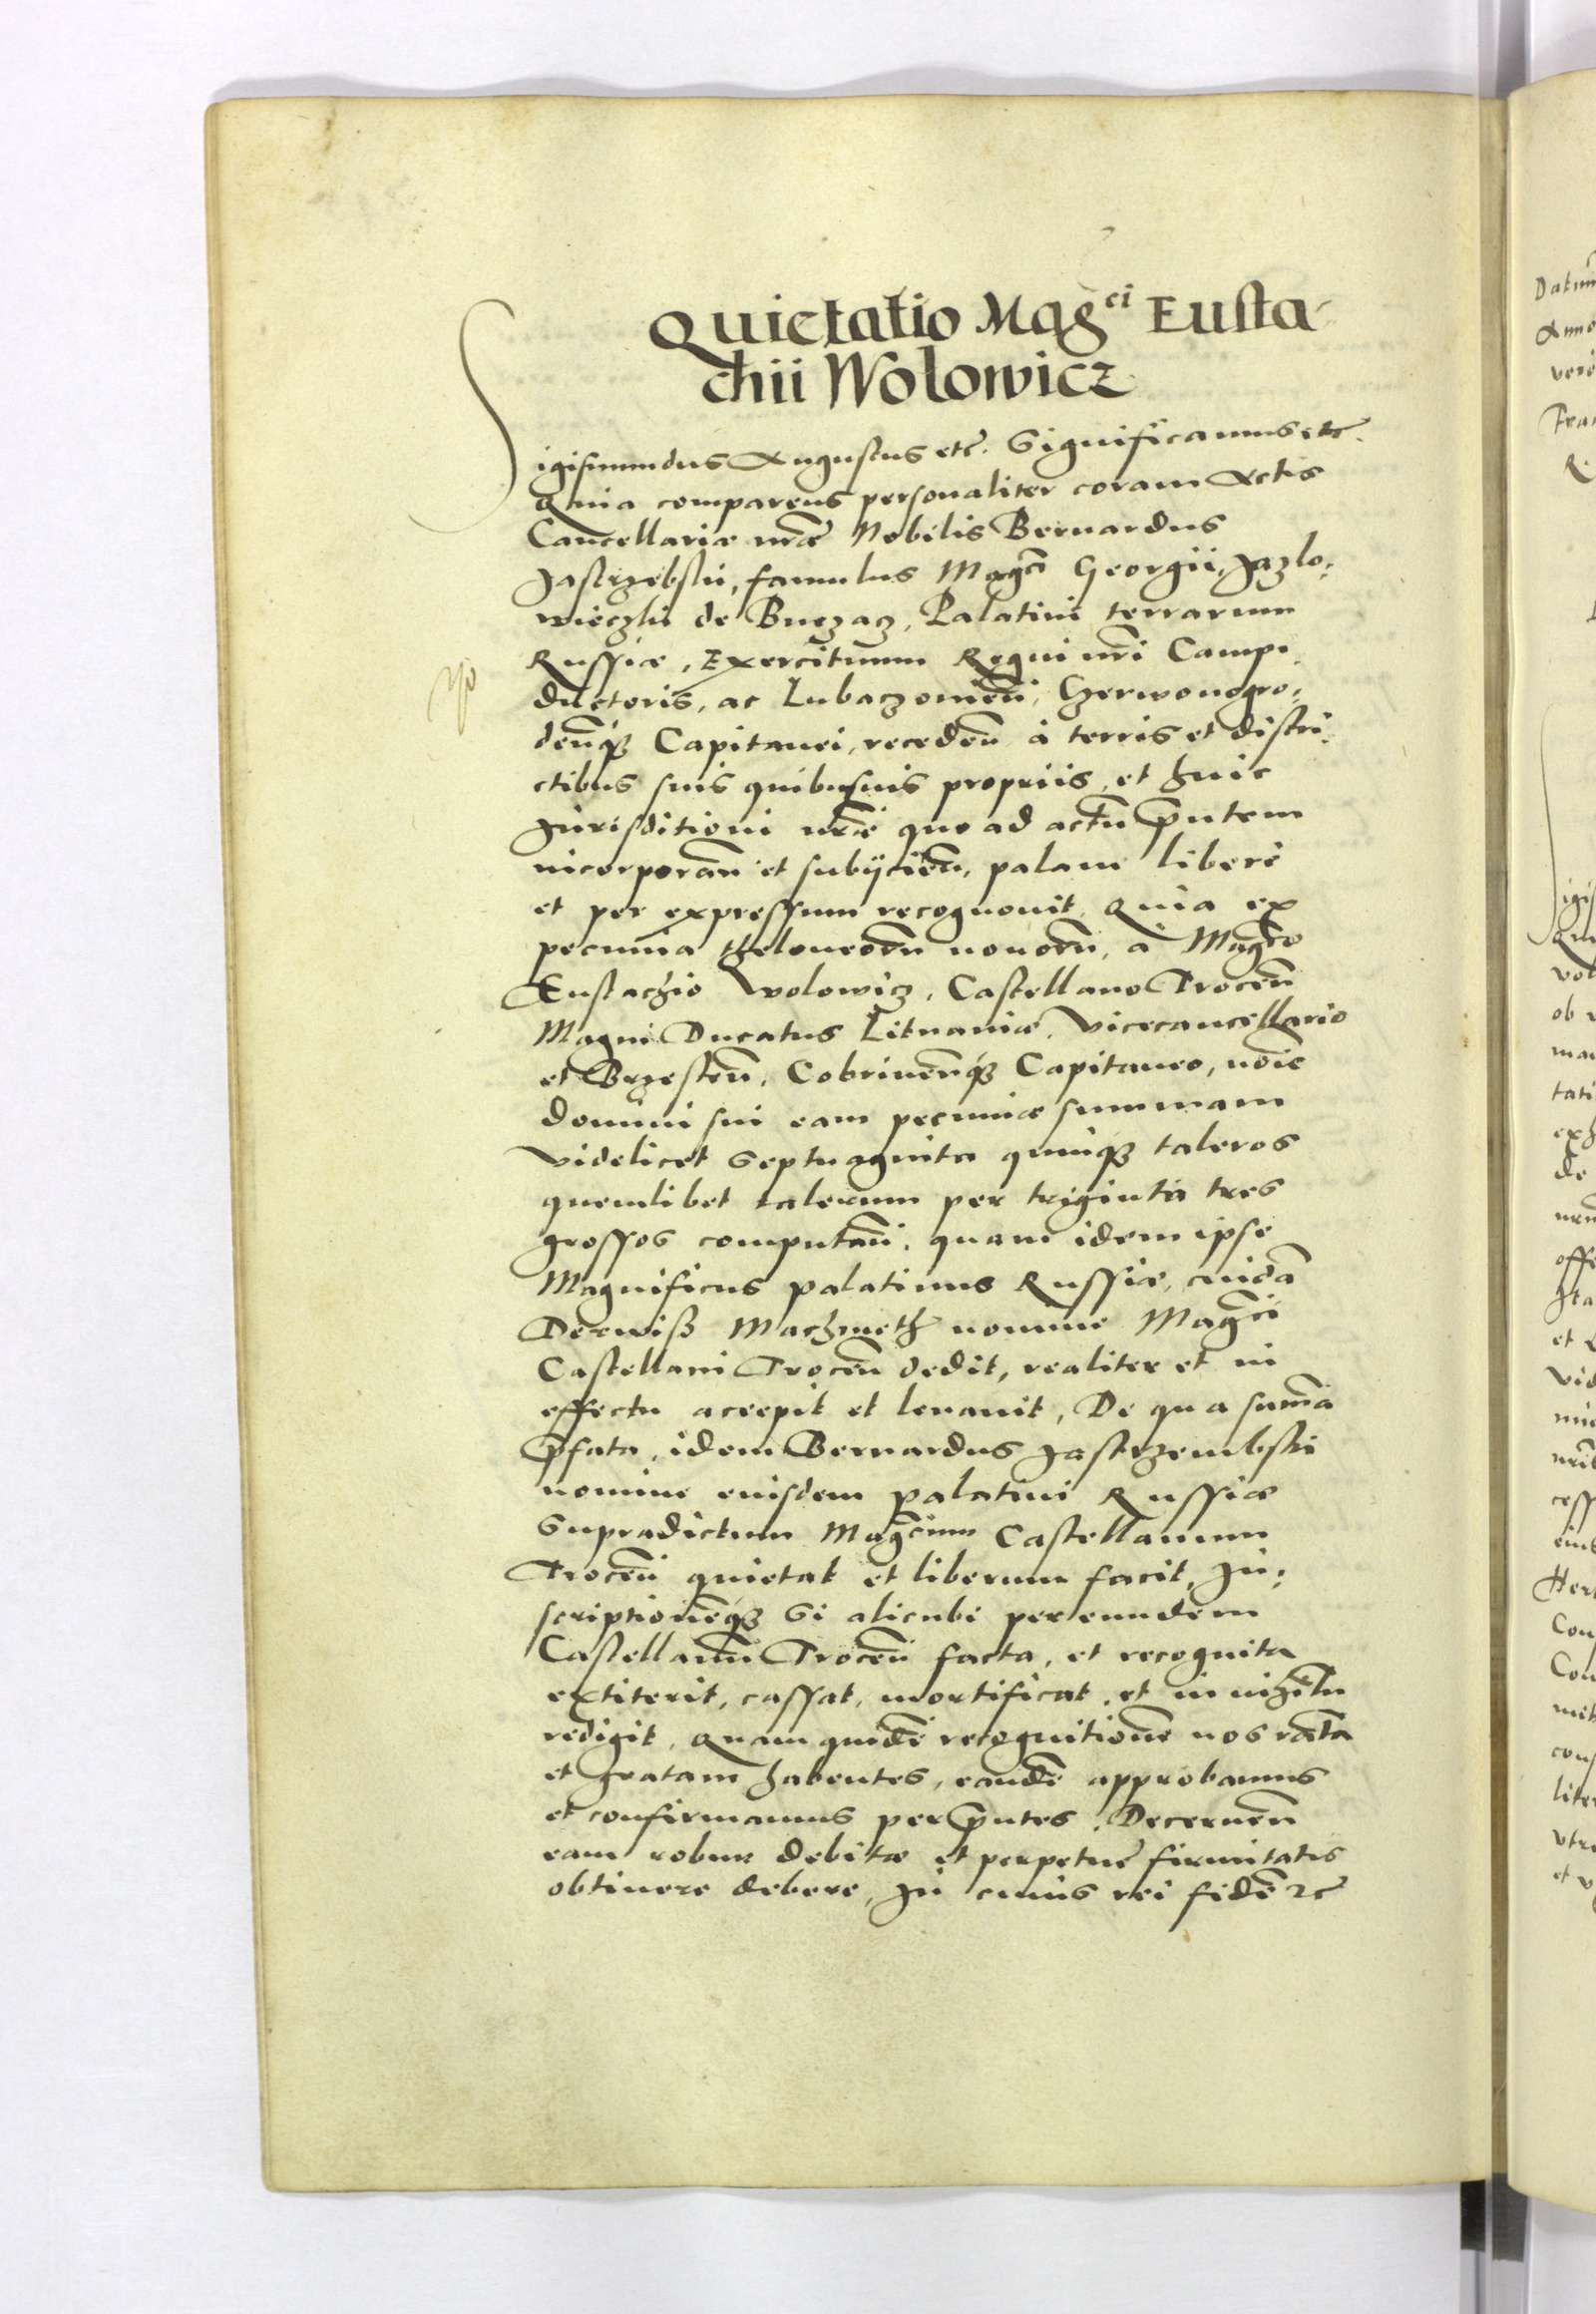 Quietatio Mag^ci Eusta-
chii Wolowicz
Sigismundus Augustus etc. Significamus etc.
Quia comparens personaliter coram Actis
Cancellariæ nr̃æ Nobilis Bernardus
Jastrzebski, famulus Magc̃i Georgii, Jazlo:
wieczki de Buczacz, Palatini terrarum
Russiæ, Exercituum Regni nr̃i Campi
ductoris, ac Lubaczowien̄, Czerwonogro:
den̄q3 Capitanei, receden̄ à terris et distri:
ctibus suis quibusuis propriis, et huic
Jurisditioni nr̃æ quo ad actũ p̃ntem
incorporan̄ et subijcien̄, palam liberè
et per expressum recognouit, Quia ex
pecunia theloneorũ nouorũ, à Magc̃o
Eustachio Wolowicz, Castellano Trocen̄
Magni Ducatus Lituaniæ, Vicecancellario
et Brzesten̄, Cobrinen̄q3 Capitaneo, noĩe
domini sui eam pecuniæ summam
videlicet Septuaginta quinq3 taleros
quemlibet talerum per triginta tres
grossos computan̄, quam idem ipse
Magnificus palatinus Russiæ, cuidã
Derwiss Machmeth nomine Magc̃i
Castellani Trocen̄ dedit, realiter et in
effectu accepit et leuauit, De qua sum̃a
p̃fata, idem Bernardus Jastrzembski
nomine eiusdem palatini Russiæ
Supradictum Magc̃um Castellanum
Trocen̄ quietat et liberum facit, In:
scriptionẽq3 Si alicubi per eundem
Castellanũ Trocen̄ facta, et recognita
extiterit, cassat, mortificat, et in nihilũ
redigit, Quam quidẽ recognitionẽ nos ratã
et gratam habentes, eandẽ approbamus
et confirmamus per p̃ntes, Decernen̄
eam robur debitæ et perpetuæ firmitatis
obtinere debere, In cuius rei fidẽ etc